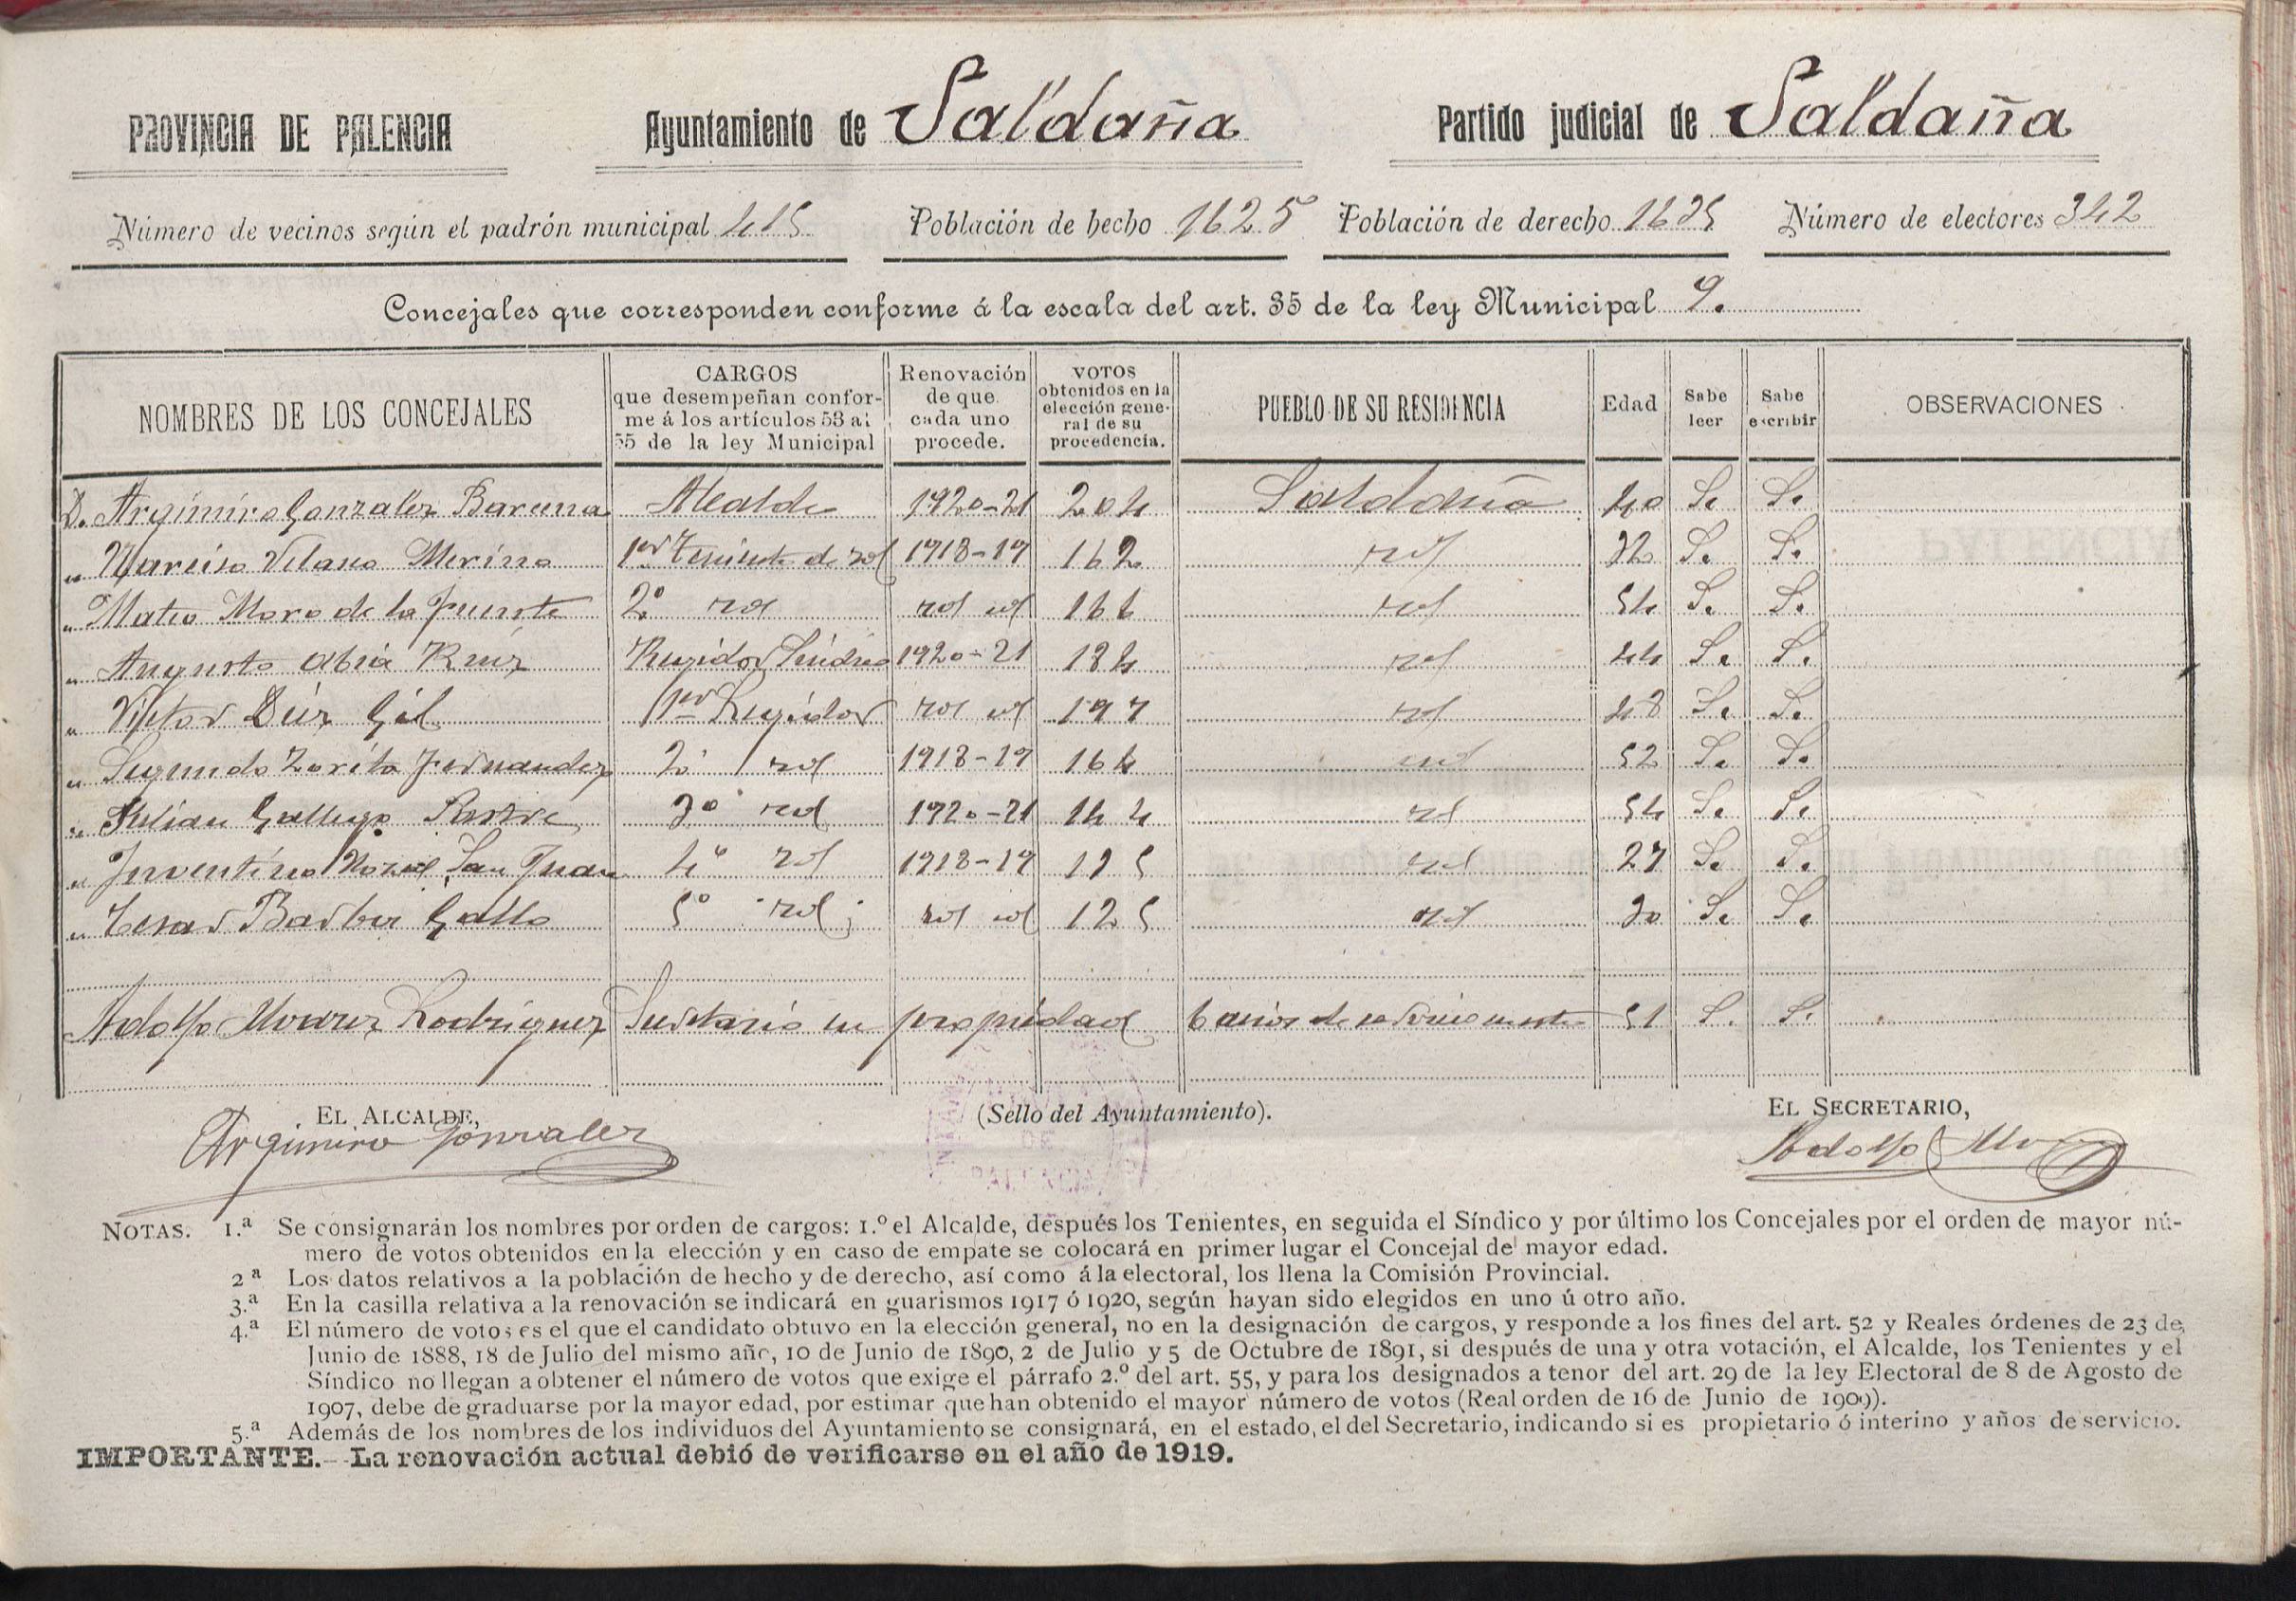 PROVINCIA DE PALENCIA Ayuntamiento de Saldaña Partido judicial de Saldaña
Número de vecinos según el padrón municipal 415 Población de hecho 1625 Población de derecho 1635 Número de electores 342
Concejales que corresponden conforme á la escala del art. 35 de la ley Municipal 9.
NOMBRES DE LOS CONCEJALES
CARGOS
que desempeñan confor-
me á los artículos 53 al
55 de la ley Municipal
Renovación
de que
cada uno
procede.
VOTOS
obtenidos en la
elección gene-
ral de su
procedencia.
PUEBLO DE SU RESIDENCIA
Edad
Sabe
leer
Sabe
escribir
OBSERVACIONES
D. Argimiro Gonzalez Barcena Alcalde 1920-21 204 Saldaña 40 Si Si
" Narciso Merino 1er Teniente de id 1918-19 162 id 32 Si Si
" Mateo Moro de la Fuente 2º id id id id 54 Si Si
" Augusto Abia Ruiz Regidor Síndico 1920-21 184 id 44 Si Si
" Victor Diez Gil 1er Regidor id id 197 id 48 Si Si
" Segundo Zorita Fernandez 2º id 1918-19 164 id 52 Si Si
" Julian Gallego 3º id 1920-21 144 id 54 Si Si
" Juventino San Juan 4º id 1918-19 id 27 Si Si
" Cesar Barba Gallo 5º id id id 125 id 30 Si Si
Adolfo Alvarez Rodriguez Secretario en propiedad 6 años de servicio 51 Si Si
EL ALCALDE, (Sello del Ayuntamiento). EL SECRETARIO,
Argimiro Gonzalez Adolfo Alvarez
DE
PALENCIA
NOTAS. 1.ª Se consignarán los nombres por orden de cargos: 1.º el Alcalde, después los Tenientes, en seguida el Síndico y por último los Concejales por el orden de mayor nú-
mero de votos obtenidos en la elección y en caso de empate se colocará en primer lugar el Concejal de mayor edad.
2ª Los datos relativos a la población de hecho y de derecho, así como á la electoral, los llena la Comisión Provincial.
3.ª En la casilla relativa a la renovación se indicará en guarismos 1917 ó 1920, según hayan sido elegidos en uno ú otro año.
4.ª El número de votos es el que el candidato obtuvo en la elección general, no en la designación de cargos, y responde a los fines del art. 52 y Reales órdenes de 23 de
Junio de 1888, 18 de Julio del mismo año, 10 de Junio de 1890, 2 de Julio y 5 de Octubre de 1891, si después de una y otra votación, el Alcalde, los Tenientes y el
Síndico no llegan a obtener el número de votos que exige el párrafo 2.º del art. 55, y para los designados a tenor del art. 29 de la ley Electoral de 8 de Agosto de
1907, debe de graduarse por la mayor edad, por estimar que han obtenido el mayor número de votos (Real orden de 16 de Junio de 1909).
5.ª Además de los nombres de los individuos del Ayuntamiento se consignará, en el estado, el del Secretario, indicando si es propietario ó interino y años de servicio.
IMPORTANTE.--La renovación actual debió de verificarse en el año de 1919.